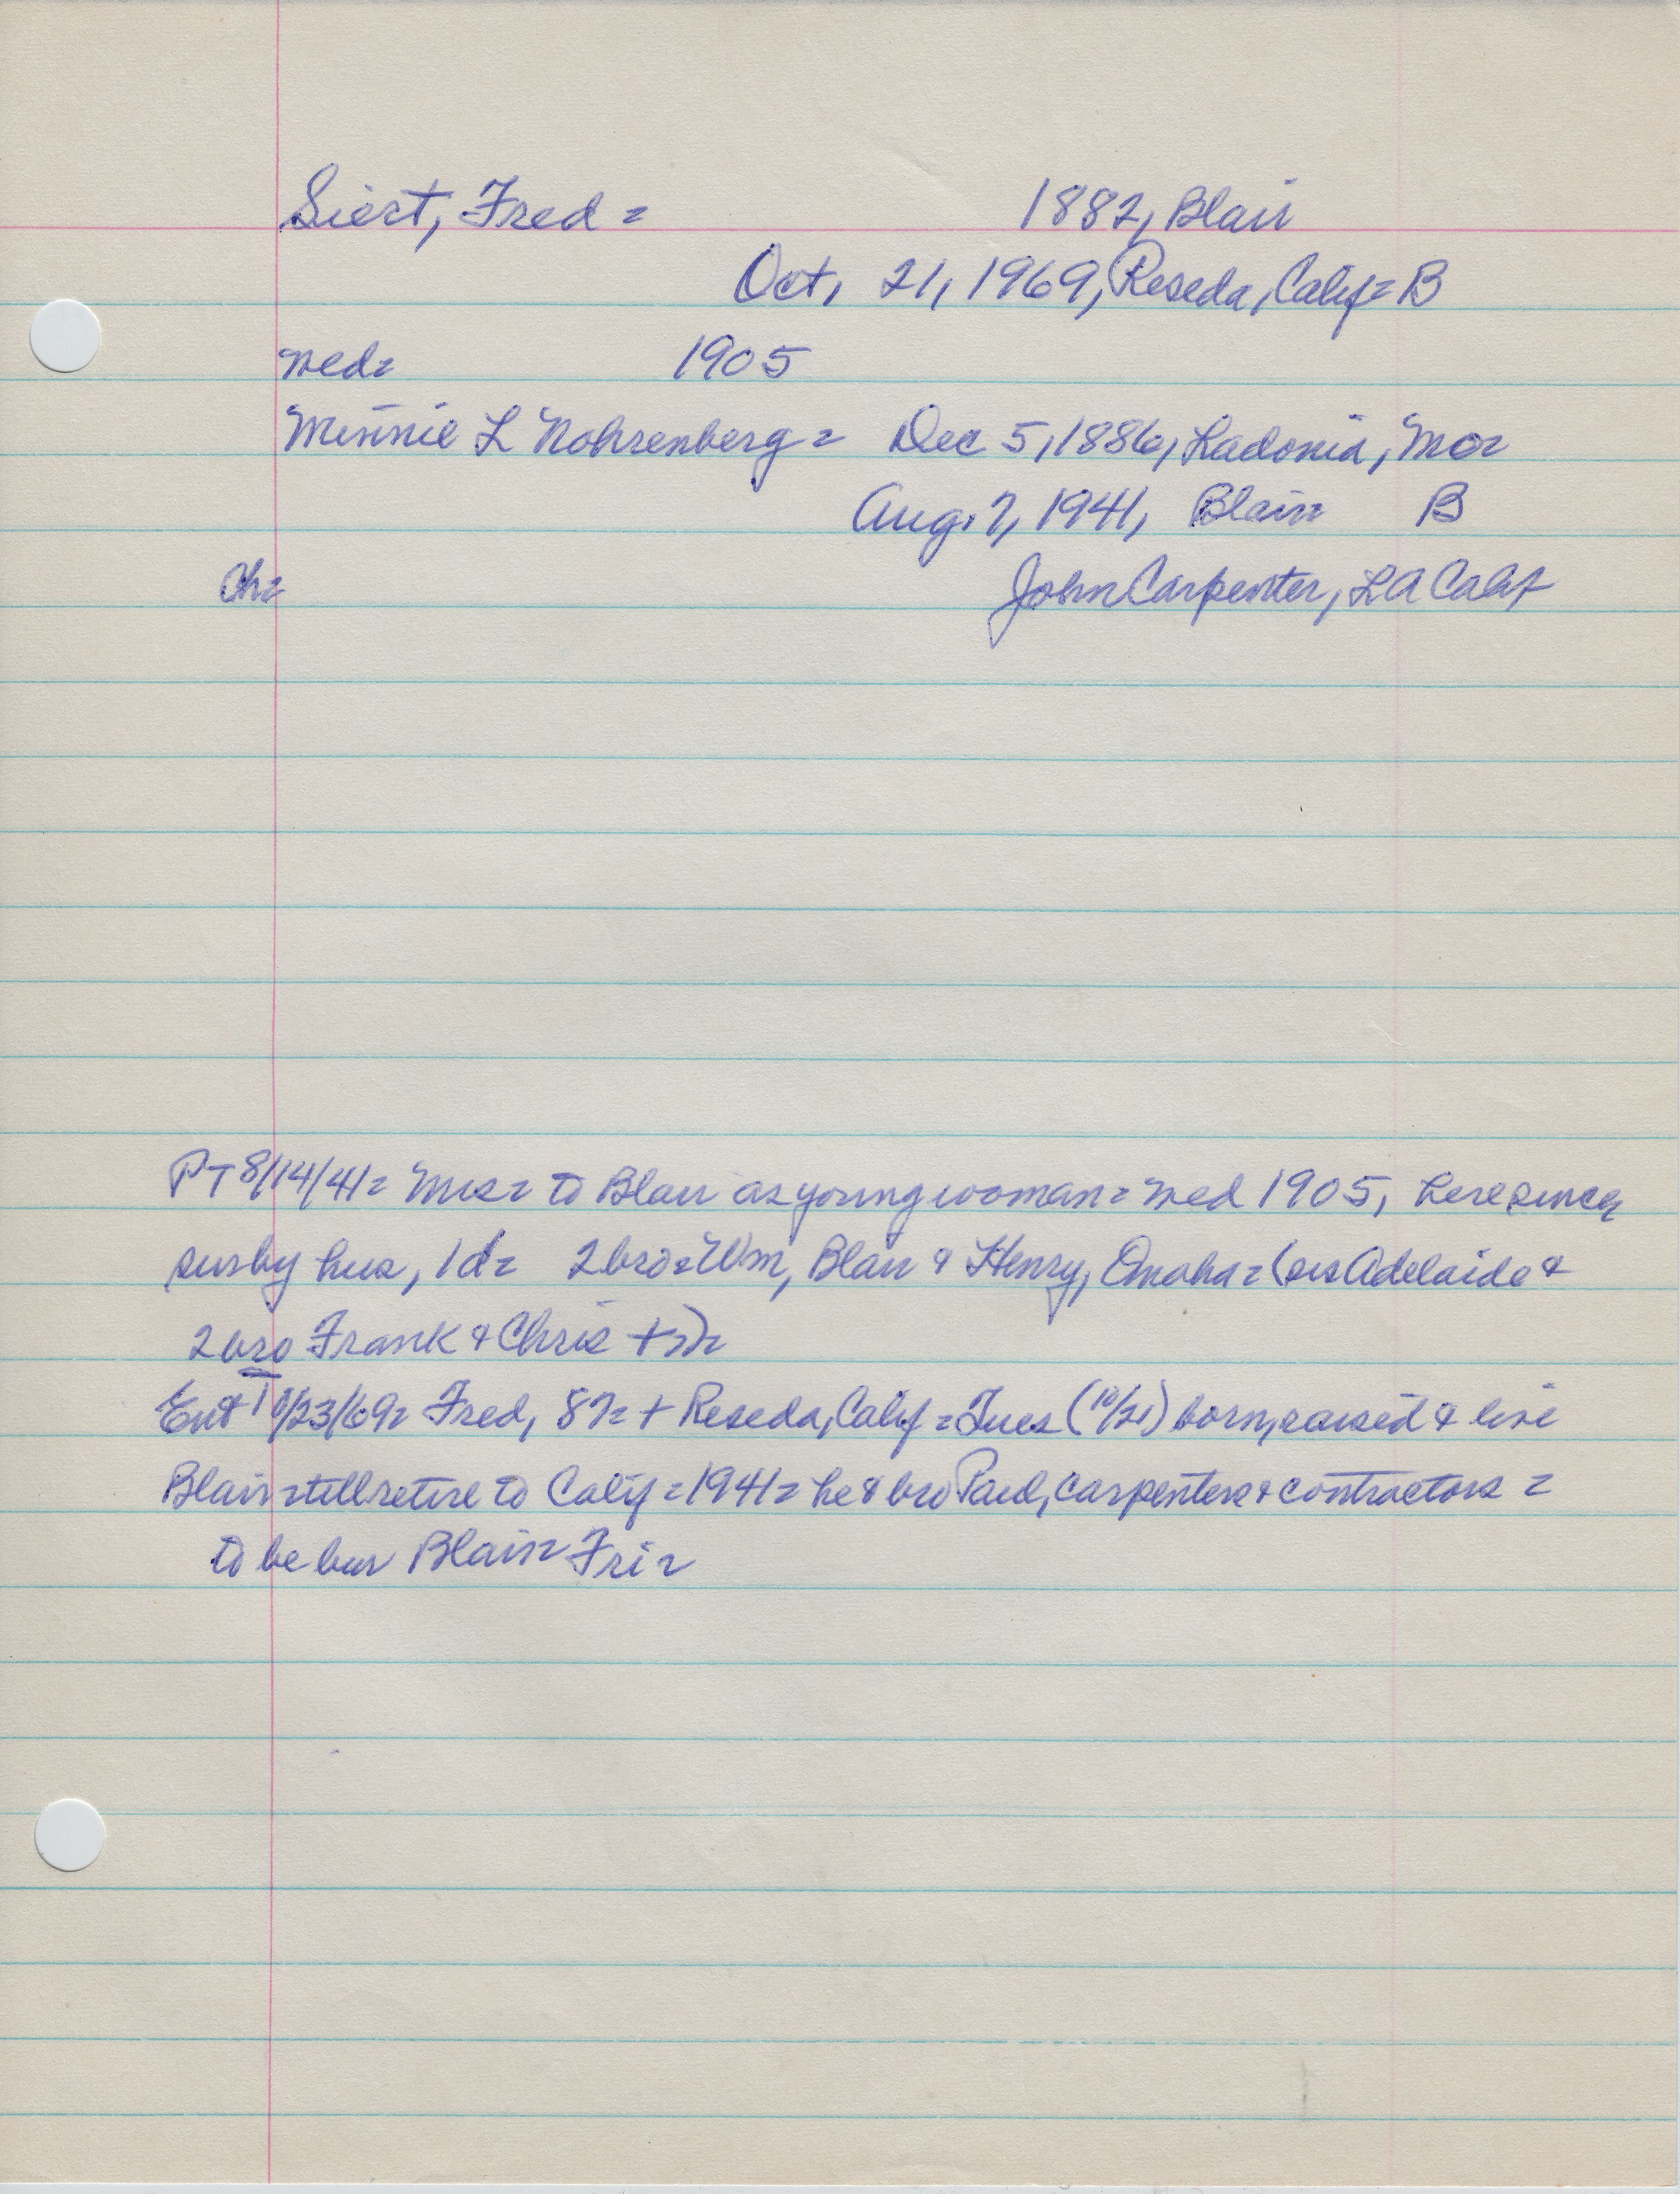 Siert, Fred = 1882, Blair
Oct, 21, 1969, Reseda, Calif = B
wed = 1905
Minnie L Nohrenberg = Dec 5, 1886, Ladonia, Mo =
Aug. 7, 1941, Blair = B
Ch = John Carpenter, LA Calif
PT 8/14/41 = Mrs = to Blair as young woman = wed 1905, here since
sur by hus, 1 d = 2 bro = Wm, Blair & Henry, Omaha = (sis Adelaide &
2 bro Frank & Chris +) =
Ent 10/23/69 = Fred, 87 = + Reseda, Calif = Tues (10/21) born, raised & live
Blair = till retire to Calif = 1941 = he & bro Paul, carpenters & contractors =
to be bur Blair = Fri =